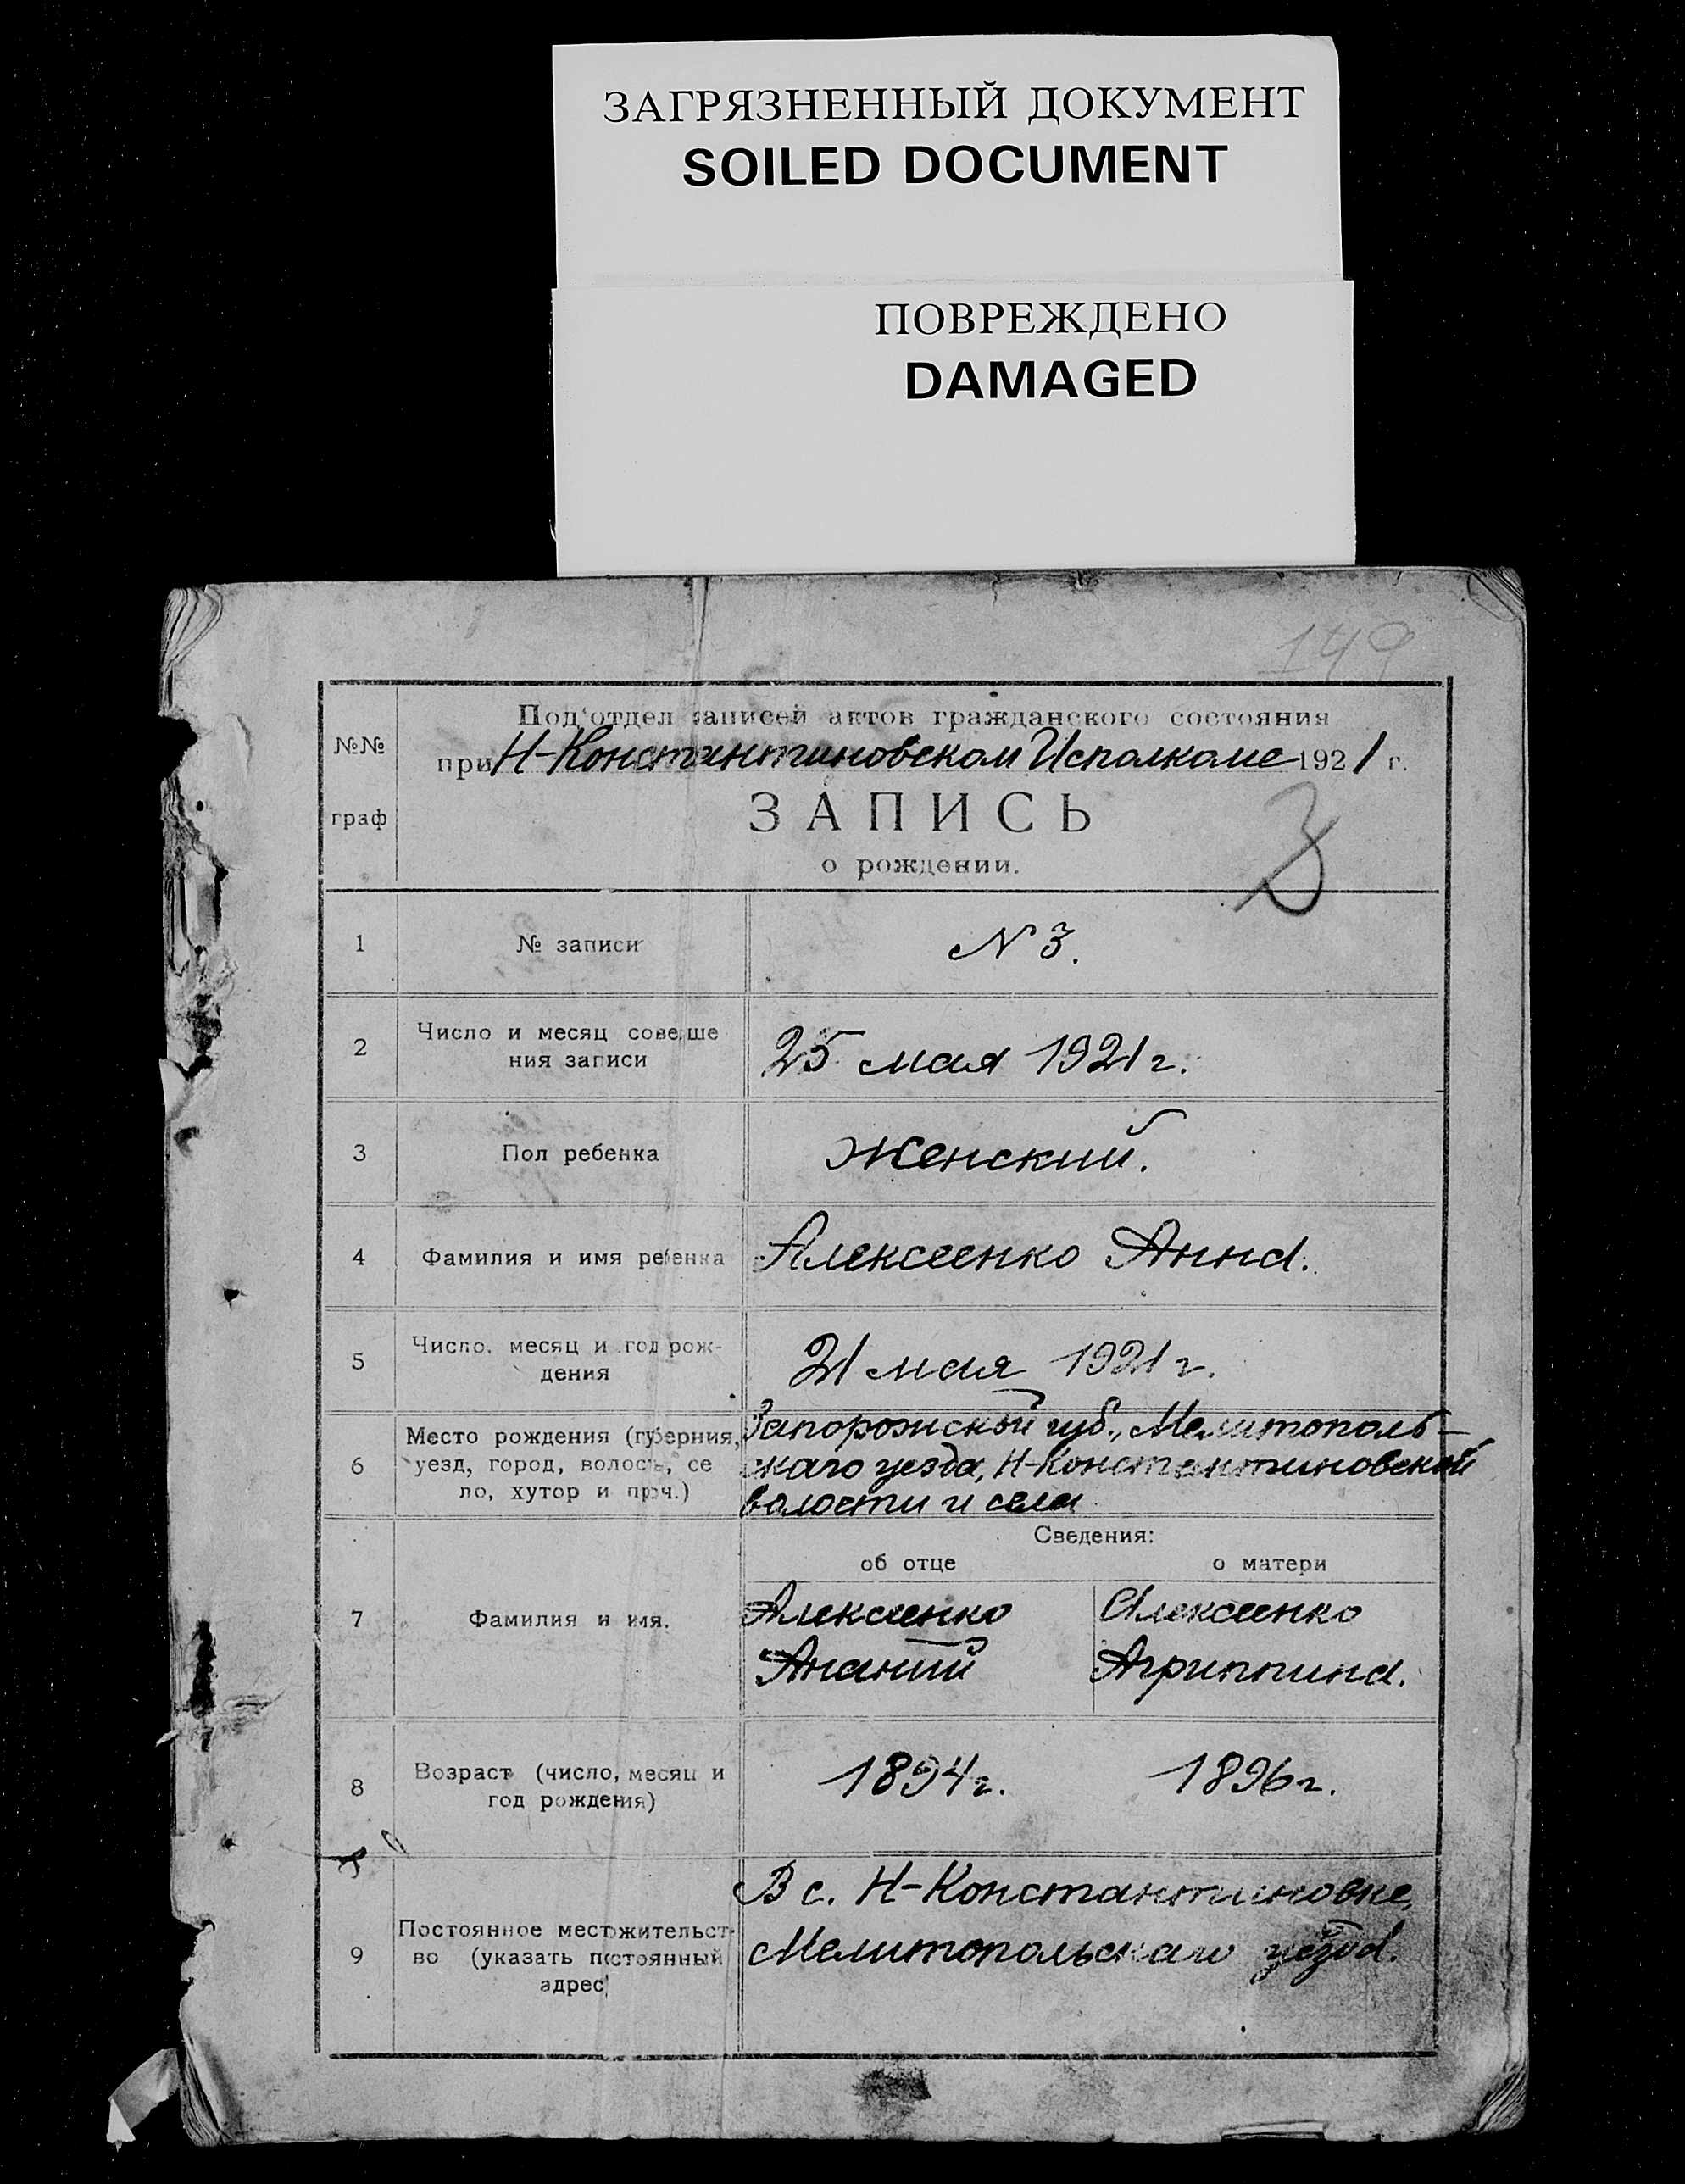 ЗАГРЯЗНЕННЫЙ ДОКУМЕНТ
SOILED DOCUMENT
ПОВРЕЖДЕНО
DAMAGED
149
№№
граф
Под'отдел записей актов гражданского состояния
при Н-Константиновском Исполкоме 1921 г.
ЗАПИСЬ
о рождении.
3
1 № записи N 3.
2 Число и месяц соверше
ния записи 25 мая 1921 г.
3 Пол ребенка Женский.
4 Фамилия и имя ребенка Алексеенко Анна.
5 Число, месяц и год рож-
дения 21 мая 1921 г.
6 Место рождения (губерния,
уезд, город, волость, се
ло, хутор и проч.)
Запорожской губ., Мелитополь-
скаго уезда, Н-Константиновской
волости и села
Сведения:
об отце о матери
7 Фамилия и имя.
Алексеенко Алексеенко
Ананий Агриппина.
8 Возраст (число, месяц и
год рождения) 1894 г. 1896 г.
9 Постоянное местожительст-
во (указать постоянный
адрес)
В с. Н-Константиновке,
Мелитопольскаго уезда.